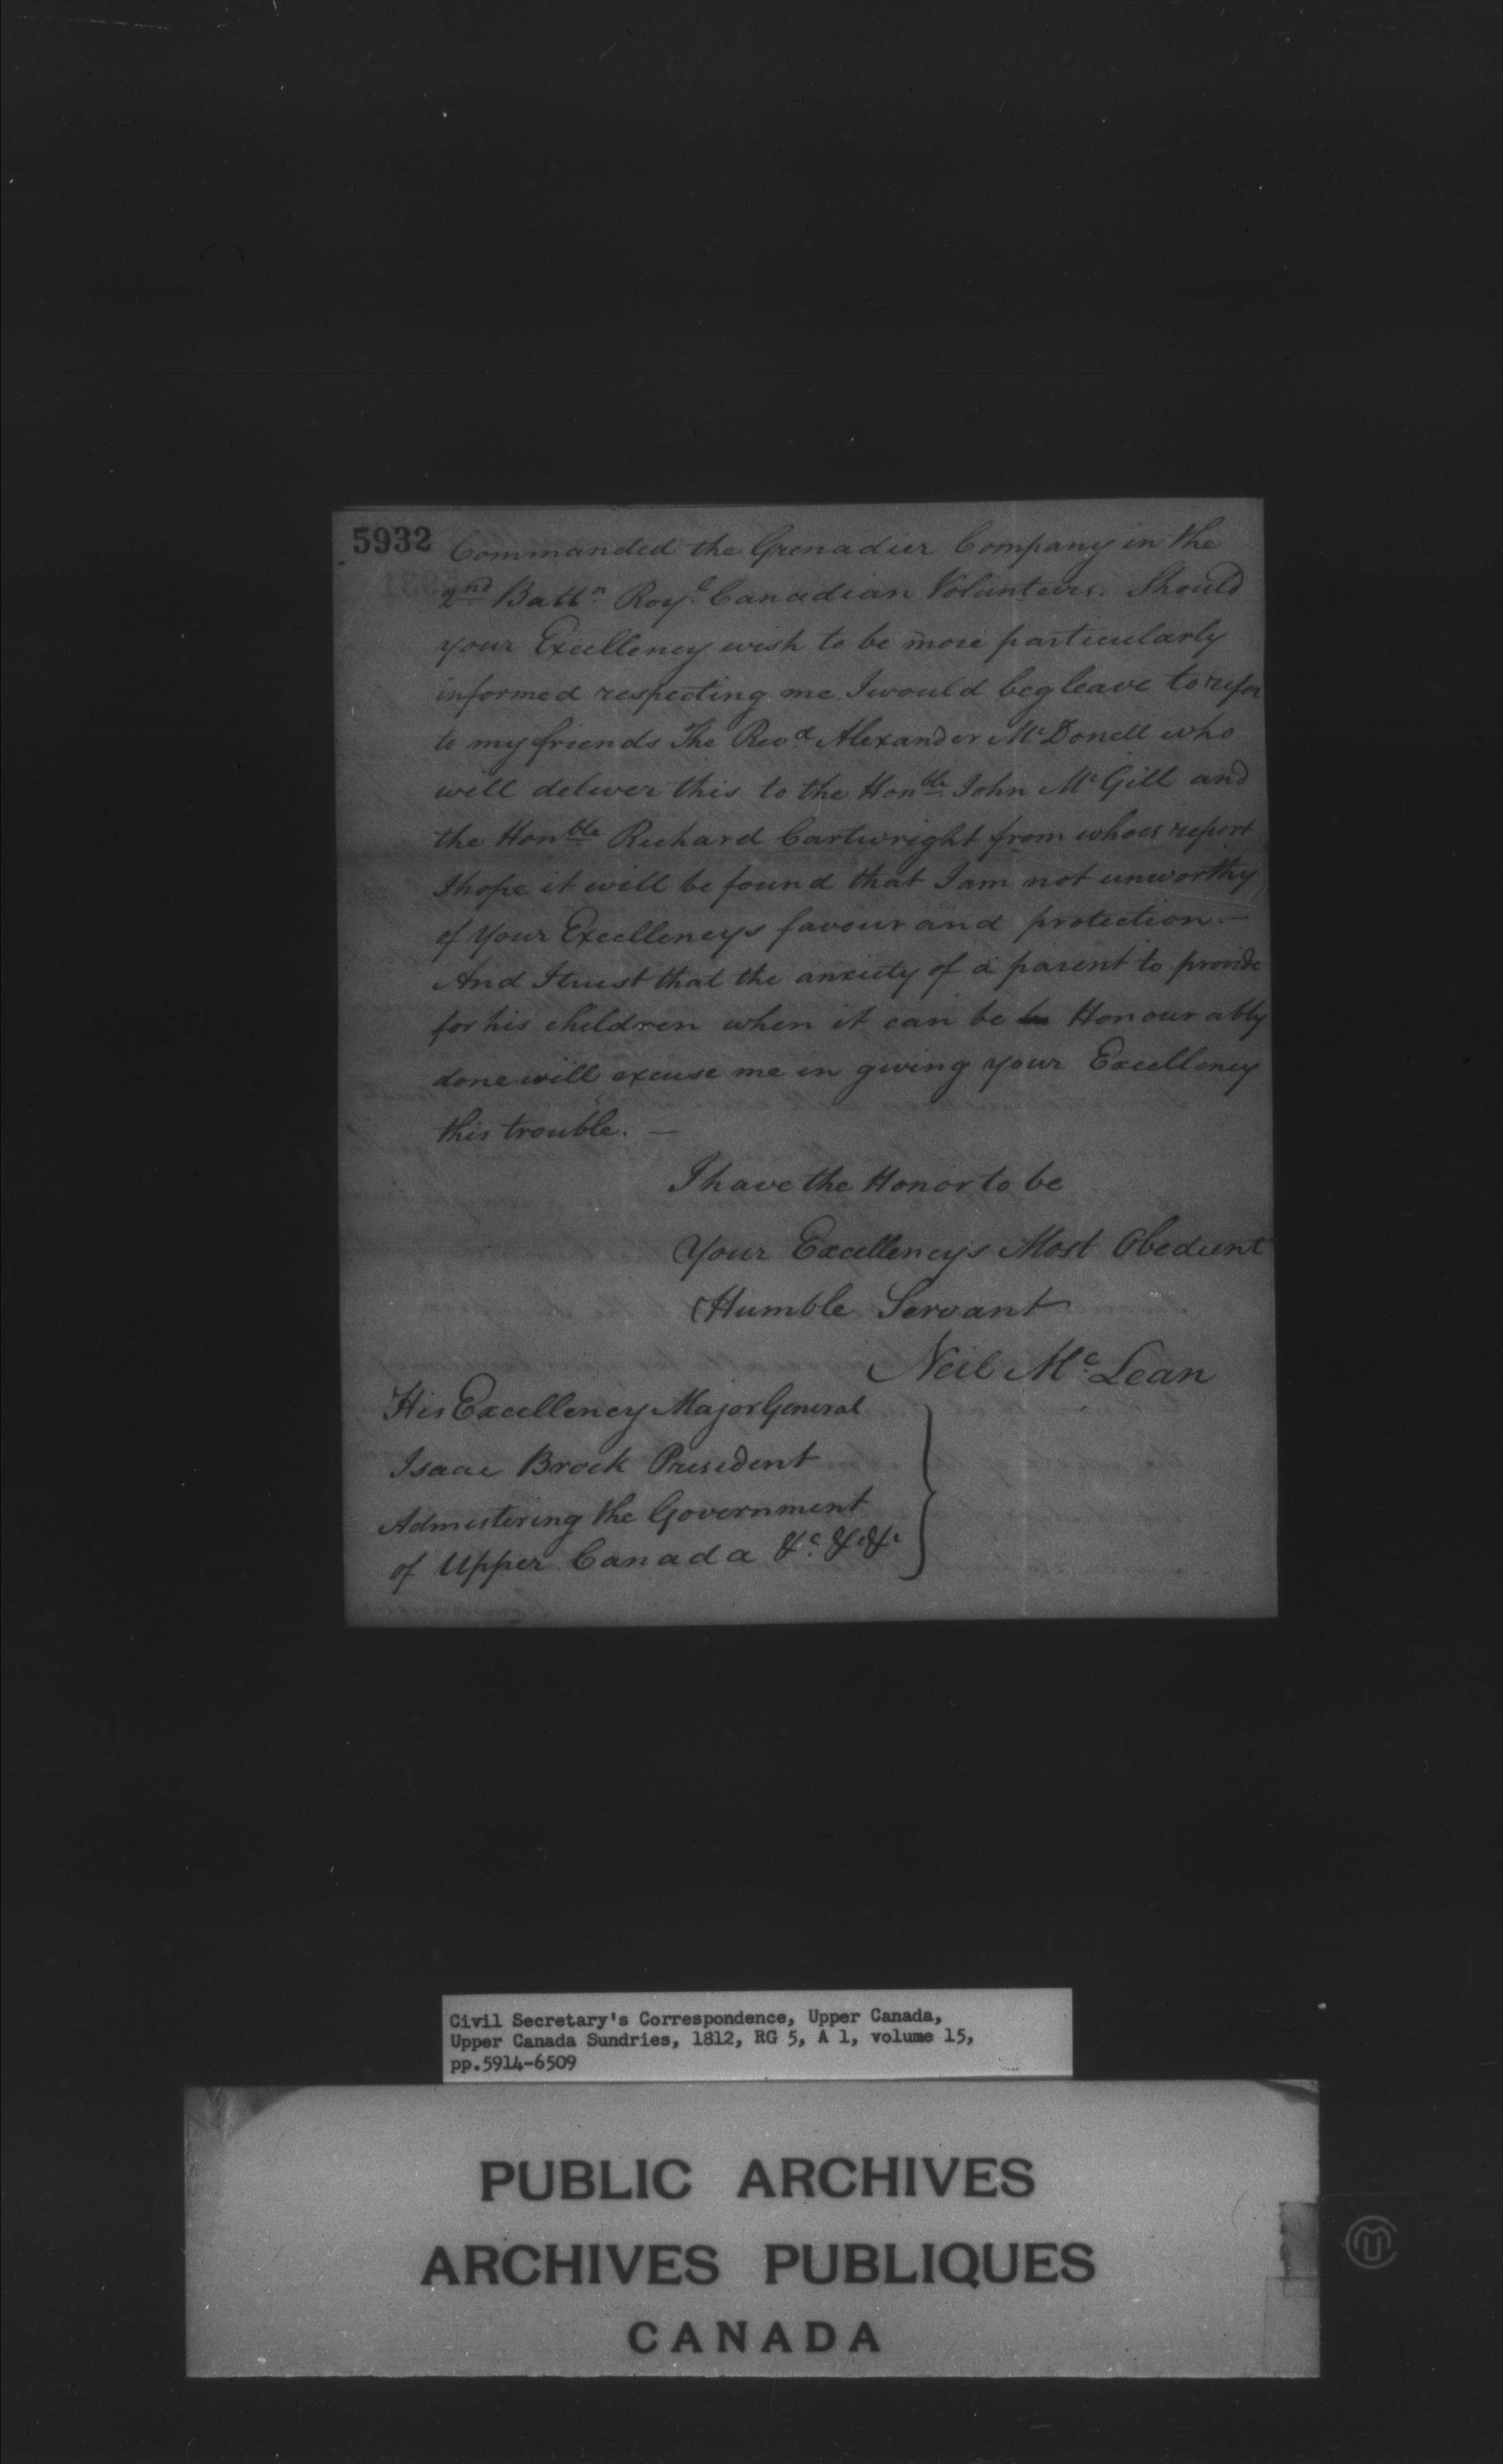 5932
Commanded the Grenadier Company in the
2nd Battn. Royl. Canadian Volunteers. Should
your Excellency wish to be more particularly
informed respecting me I would beg leave to refer
to my friends The Revd. Alexander McDonell who
will deliver this to the Honble. John McGill and
the Honble Richard Cartwright from whoes report
I hope it will be found that I am not unworthy
of Your Excellencys favour and protection. —
And I trust that the anxiety of a parent to provide
for his children when it can be be Honourably
done will excuse me in giving your Excellency
this trouble. —
I have the Honor to be
Your Excellencys Most Obedient
Humble Servant
Neil Mc. Lean
His Excellency Major General
Isaac Brock President
Admistering the Government
of Upper Canada &c. &c &c
Civil Secretary's Correspondence, Upper Canada,
Upper Canada Sundries, 1812, RG 5, A 1, volume 15,
pp.5914-6509
PUBLIC ARCHIVES
ARCHIVES PUBLIQUES
CANADA